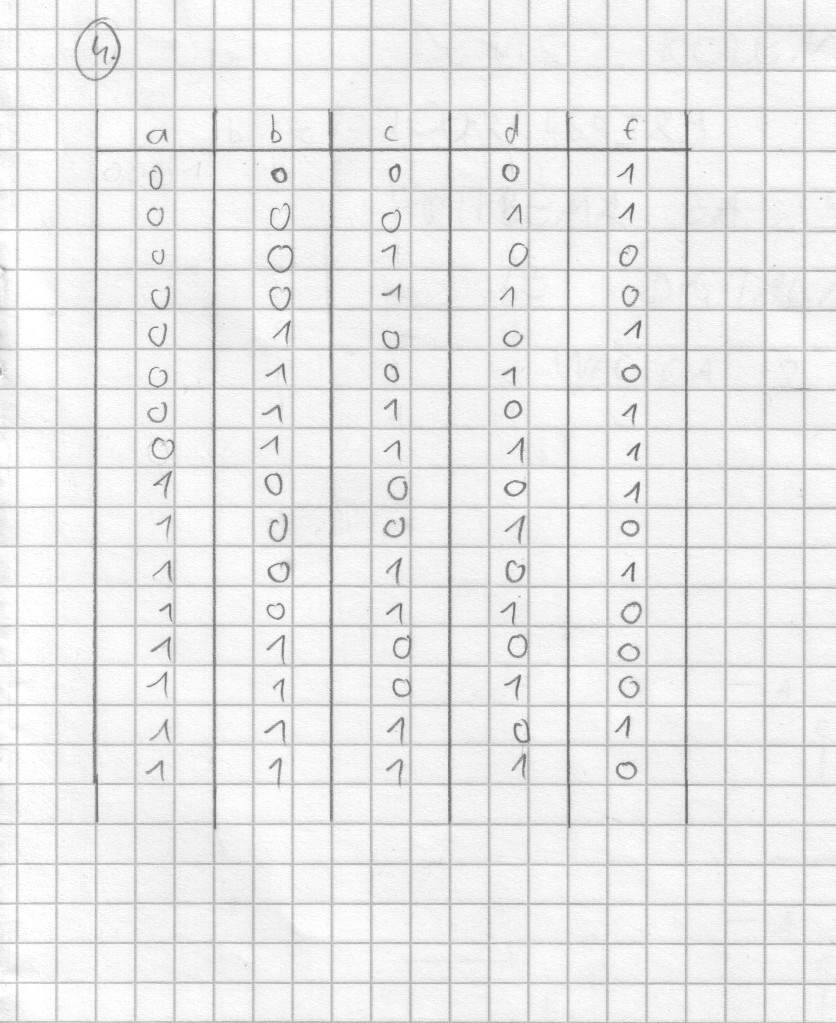 4.
a b c d f
0 0 0 0 1
0 0 0 1 1
0 0 1 0 0
0 0 1 1 0
0 1 0 0 1
0 1 0 1 0
0 1 1 0 1
0 1 1 1 1
1 0 0 0 1
1 0 0 1 0
1 0 1 0 1
1 0 1 1 0
1 1 0 0 0
1 1 0 1 0
1 1 1 0 1
1 1 1 1 0